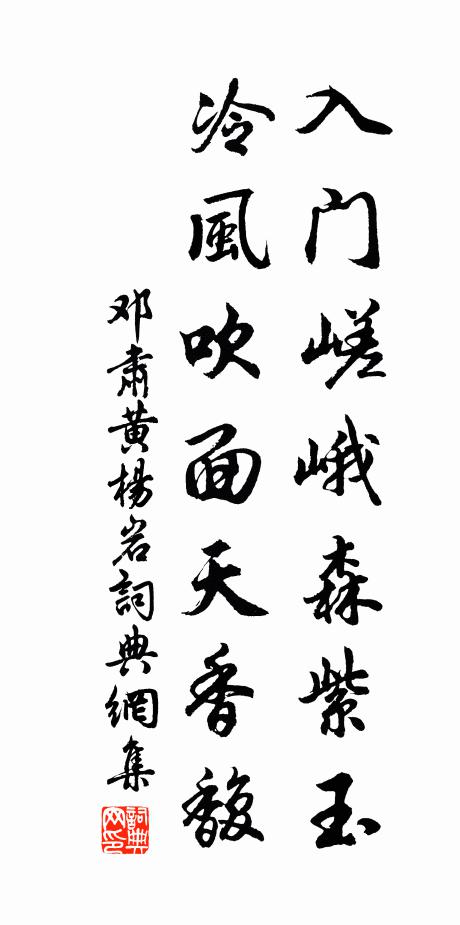 入门嵯峨森紫玉
冷風吹面天香馥
邓肅黄楊岩詞典網集
詞典网印